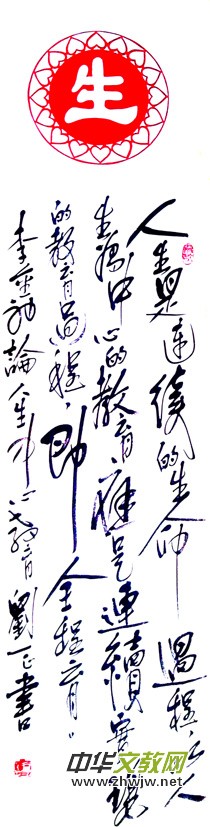 生
人生是連续的生命過程,以人
生為中心的教育,是連續
的教育過程,即全程育。
李論人生中心教育 劉書
中华文教网
www.zhwjw.net